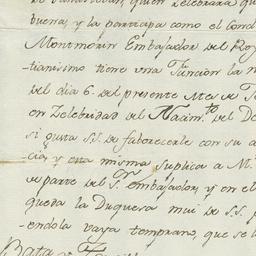 quien Zelebrara qu
buena, y la participa como el Cond
Montmorin Embajador del Rey
tianisimo tiene una Funcion la n
del dia 6. del presente Mes de
en Zelebridad del Nacim.to del De
si gusta S.S. de faborecerle con su a
cia, y esta misma suplica a M.
de parte del S.r embajador, y en el
queda la Duquesa mui de S.S. p
endola vaya temprano, que se l